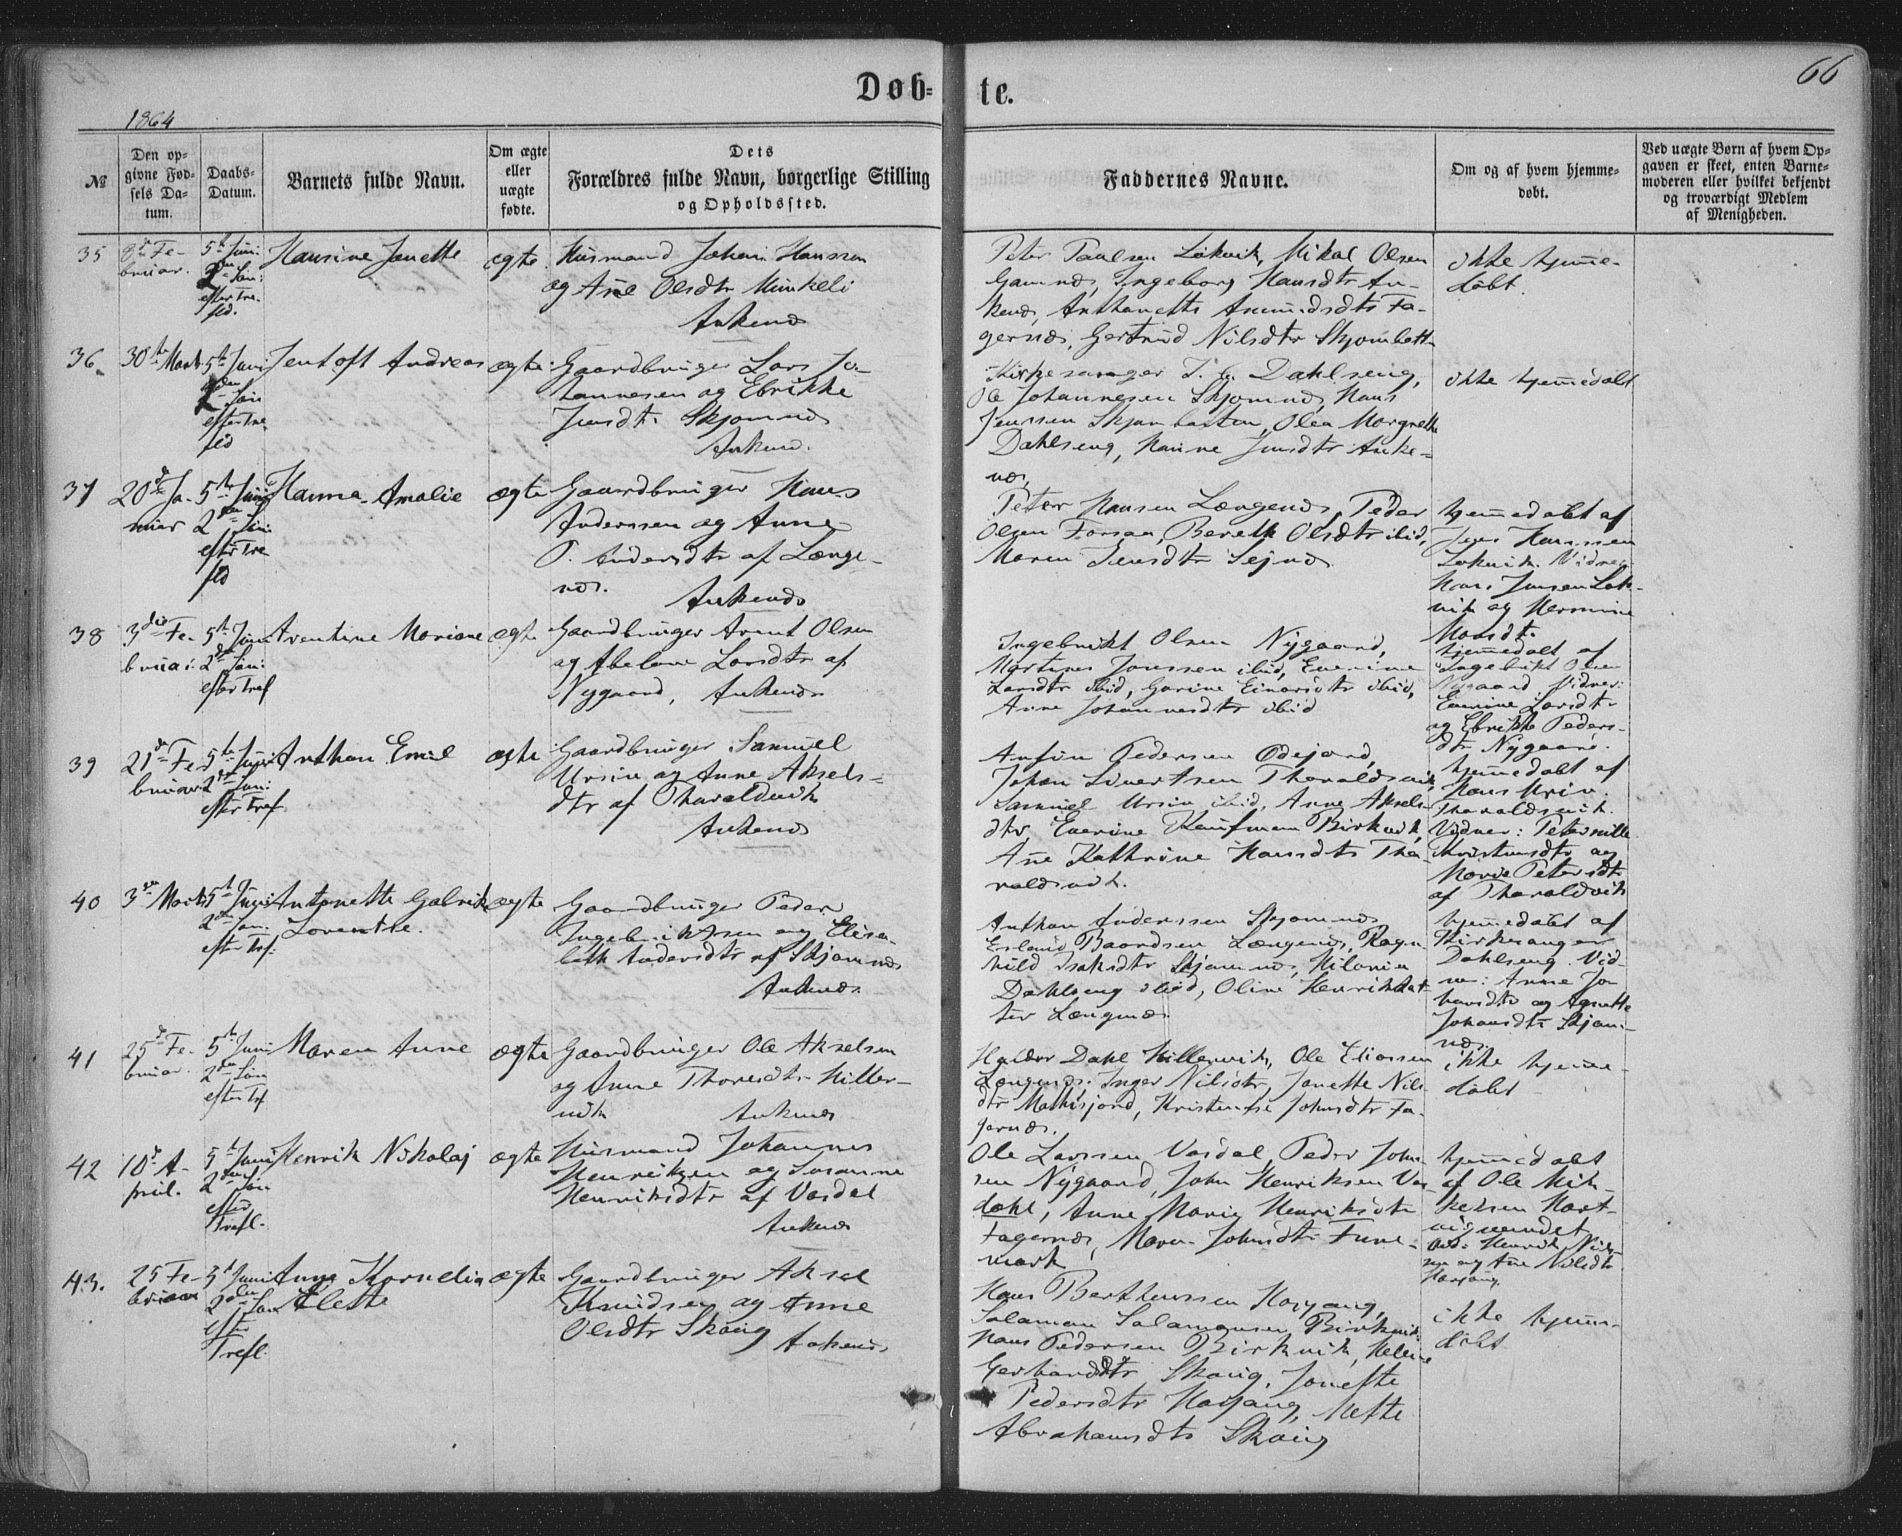 Døb-
te.
66
1864
№
Den op-
givne Fød-
sels Da-
tum.
Daabs-
Datum.
Barnets fulde Navn.
Om ægte
eller
uægte
fødte.
Dets
Forældres fulde Navn, borgerlige Stilling
og Opholdssted.
Faddernes Navne.
Om og af hvem hjemme-
døbt.
Ved uægte Børn af hvem Op-
gaven er skeet, enten Barne-
moderen eller hvilket bekjendt
og troværdigt Medlem
af Menigheden.
35
8de Fe-
bruar.
5te Juni
2den Søn:
efter Tre-
fld.
Hansine Janette
ægte
Husmand Johan Hansen
og Ane Olsdtr
Ankenæs
Peter Paulsen Lokvik, Mikal Olsen
Ingeborg Hansdtr An-
kenæs, Anthonette Amundsdtr Fa-
gernæs, Gertrud Nilsdtr Skjombott
ikke hjemme-
døbt.
36
30te Marts
5te Juni
2den Søn
efter Tre
fld
Jentoft Andreas
ægte
Gaardbruger Lars Jo-
hannesen og Ebrikke
Jensdtr Skjomnæs
Ankenæs.
Kirkesanger Dahlseng,
Ole Johannesen Skjomnæs, Hans
Jenssen Skjombotten, Olea Margrethe
Dahlseng, Hanne Jensdtr Anke-
næs.
ikke hjemmedøbt
37
20de Ja-
nuar
5te Juni
2den Søn:
efter Tre
fld
Hanna Amalie
ægte
Gaardbruger Hans
Anderssen og Anne
P. Andersdtr af Længe-
næs.
Ankenæs
Peter Hansen Længenæs, Peder
Olsen Forsaa, Bereth Olsdtr ibid,
Maren Jensdtr
hjemmedøbt af
Jens Hanssen
Lokvik. Vidner
Hans Jensen Lok-
vik og Hermine
Hansdtr
38
3die Fe-
bruar.
5te Juni
2den Søn:
efter Tref
Arentine Mariane
ægte
Gaardbruger Arent Olsen
og Abelone Larsdtr af
Nygaard, Ankenæs
Ingebrikt Olsen Nygaard,
Martines Jenssen ibid, Everine
Larsdtr ibid, Gurine Einarsdtr ibid,
Anne Johannesdtr ibid
hjemmedøbt af
Ingebrikt Olsen
Nygaard Vidner:
Everine Larsdtr
og Ebrikke Peders-
dtr Nygaard.
39
21de Fe-
bruar
5te Juni
2den Søn:
efter Tref
Anthon Emil
ægte
Gaardbruger Samuel
Ursin og Anne Aksels-
dtr af Tharaldsvik
Ankenæs
Anton Pedersen
Johan Sivertsen Tharaldsvik
Samuel Ursin ibid, Anne Aksels-
dtr, Everine Kaufman Birkvik,
Ane Kathrine Hansdtr Tha-
raldsvik.
hjemmedøbt af
Hans Ursin
Tharaldsvik.
Vidner: Peternille
Kristensdtr og
Petersdtr
af Tharaldsvik
40
3die Marts
5te Juni
2den Søn:
efter Tref:
Antonette Gabrikke
Lorentse.
ægte
Gaardbruger Peder
Ingebriktsen og Elisa-
beth Andersdtr af Skjomnæs
Ankenæs.
Anthon Anderssen Skjomnæs
Erland Baardsen Længenæs, Ragn
hild Isaksdtr Skjomnæs, Hilaria
Dahlseng ibid, Oline Henriksdat-
ter Længenæs
hjemmedøbt af
Kirkesanger
Dahlseng. Vid-
ner: Anne Jo
hansdtr og Agnette
Johansdtr Skjom-
næs.
41
25de Fe-
bruar.
5te Juni
2den Søn
efter Tref
Maren Anne
ægte
Gaardbruger Ole Akselsen
og Anne Thoresdtr Hiller-
vik
Ankenæs
Haldor Dahl Hillervik, Ole Eliassen
Længenæs, Inger Nilsdtr, Janette Nils-
dtr Kristense Johnsdtr Fa-
gernæs.
ikke hjemme-
døbt
42
10de A-
pril.
5te Juni
2den Søn
efter
Trefl.
Henrik Nikolaj
ægte
Husmand Johannes
Henriksen og Susanne
Henriksdtr af Vasdal
Ankenæs
Ole Larssen Vasdal, Peder John-
sen Nygaard, John Henriksen Vas-
dahl, Anne Marie Henriksdtr
Fagernæs, Maren Johnsdtr Fine-
mark
hjemmedøbt
af Ole Mik-
kelsen
43.
25 Fe-
bruar
5te Juni
2den Søn
efter
Trefl.
Anna Kornelia
Alette
ægte
Gaardbruger Aksel
Knudsen og Anne
Olsdtr Skoug
Ankenæs
Hans Berthenssen
Salamon Salamonsen Birkvik
Hans Pedersen Birkvik, Helene
Gerhardsdtr Skoug, Janette
Pedersdtr Mette
Abrahamsdtr Skoug
ikke hjemme-
døbt